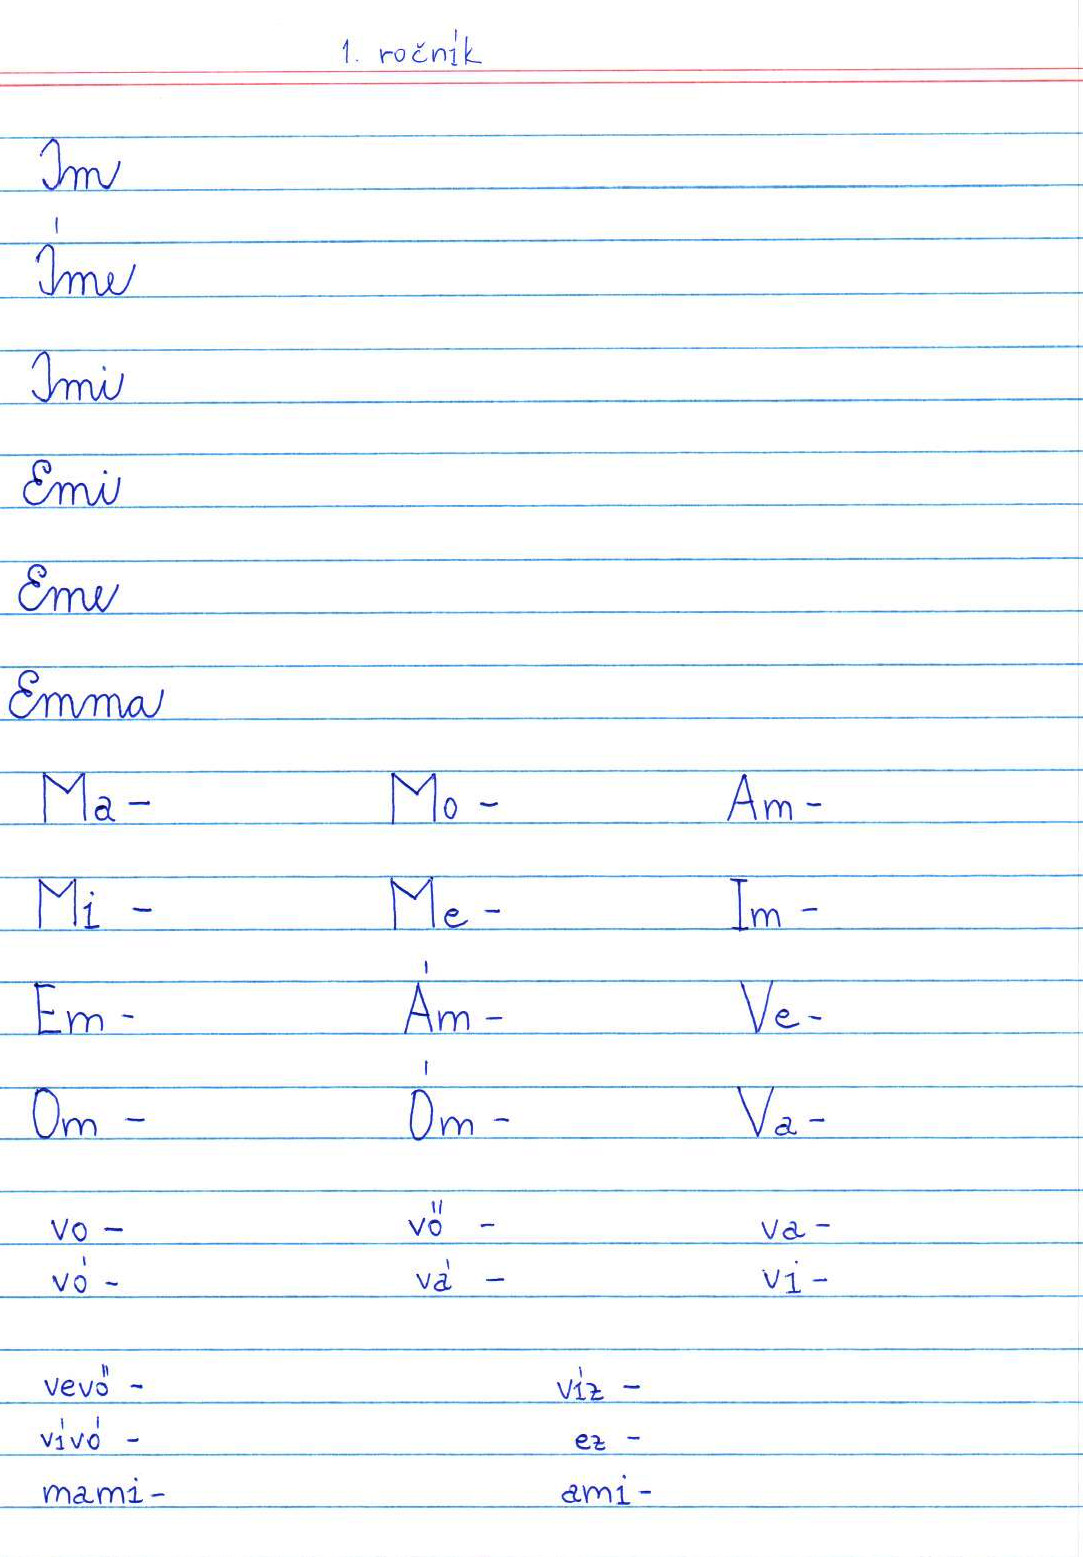 1. ročník
Im
Íme
Imi
Emi
Eme
Emma
Ma - Mo - Am -
Mi - Me - Im -
Em - Ám - Ve -
Om - Óm - Va -
vo - vő - va -
vó - vá - vi -
vevő - víz -
vívó - ez -
mami - ami -